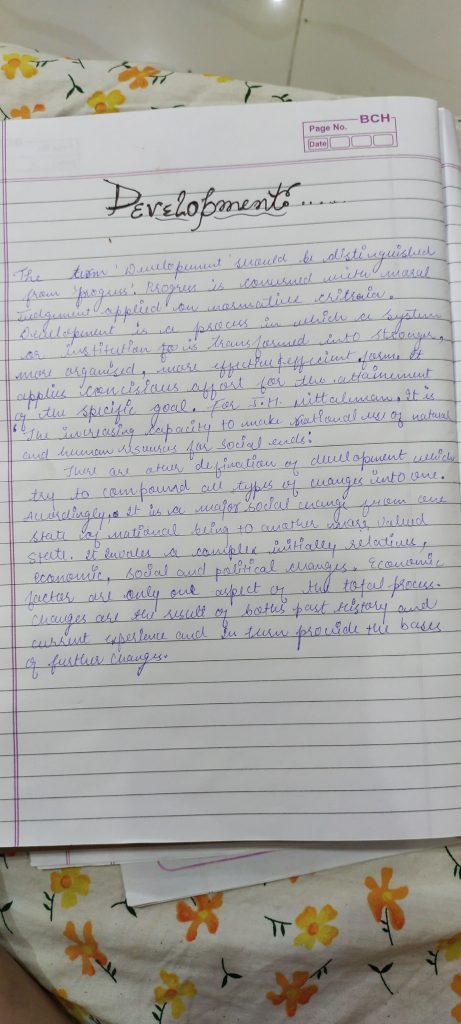 BCH
Page No.
Date
Development:.....
The term 'Development' should be distinguished
from 'progress'. Progress is conserned with moral
Judgement applied on normative critrain.
Development is a process in which a system
or institution to is transformed into stronger,
more organised, more effective & efficient form. It
applies conciscious affort for the attainment
of the specific goal. For J.H. Mittaleman. It is
"The increasing capacity to make rational use of natural
and human resources for social ends:
There are other defination of development which
try to compound all types of changes into one.
Accordingly, it is a major social change from one
state of national being to another more valued
state. It involes a complex initially relative,
economic, social and political changes. Economic
factor are only one aspect of the total process.
Changes are the result of boths past history and
current experience and in turn provide the bases
of further changes.